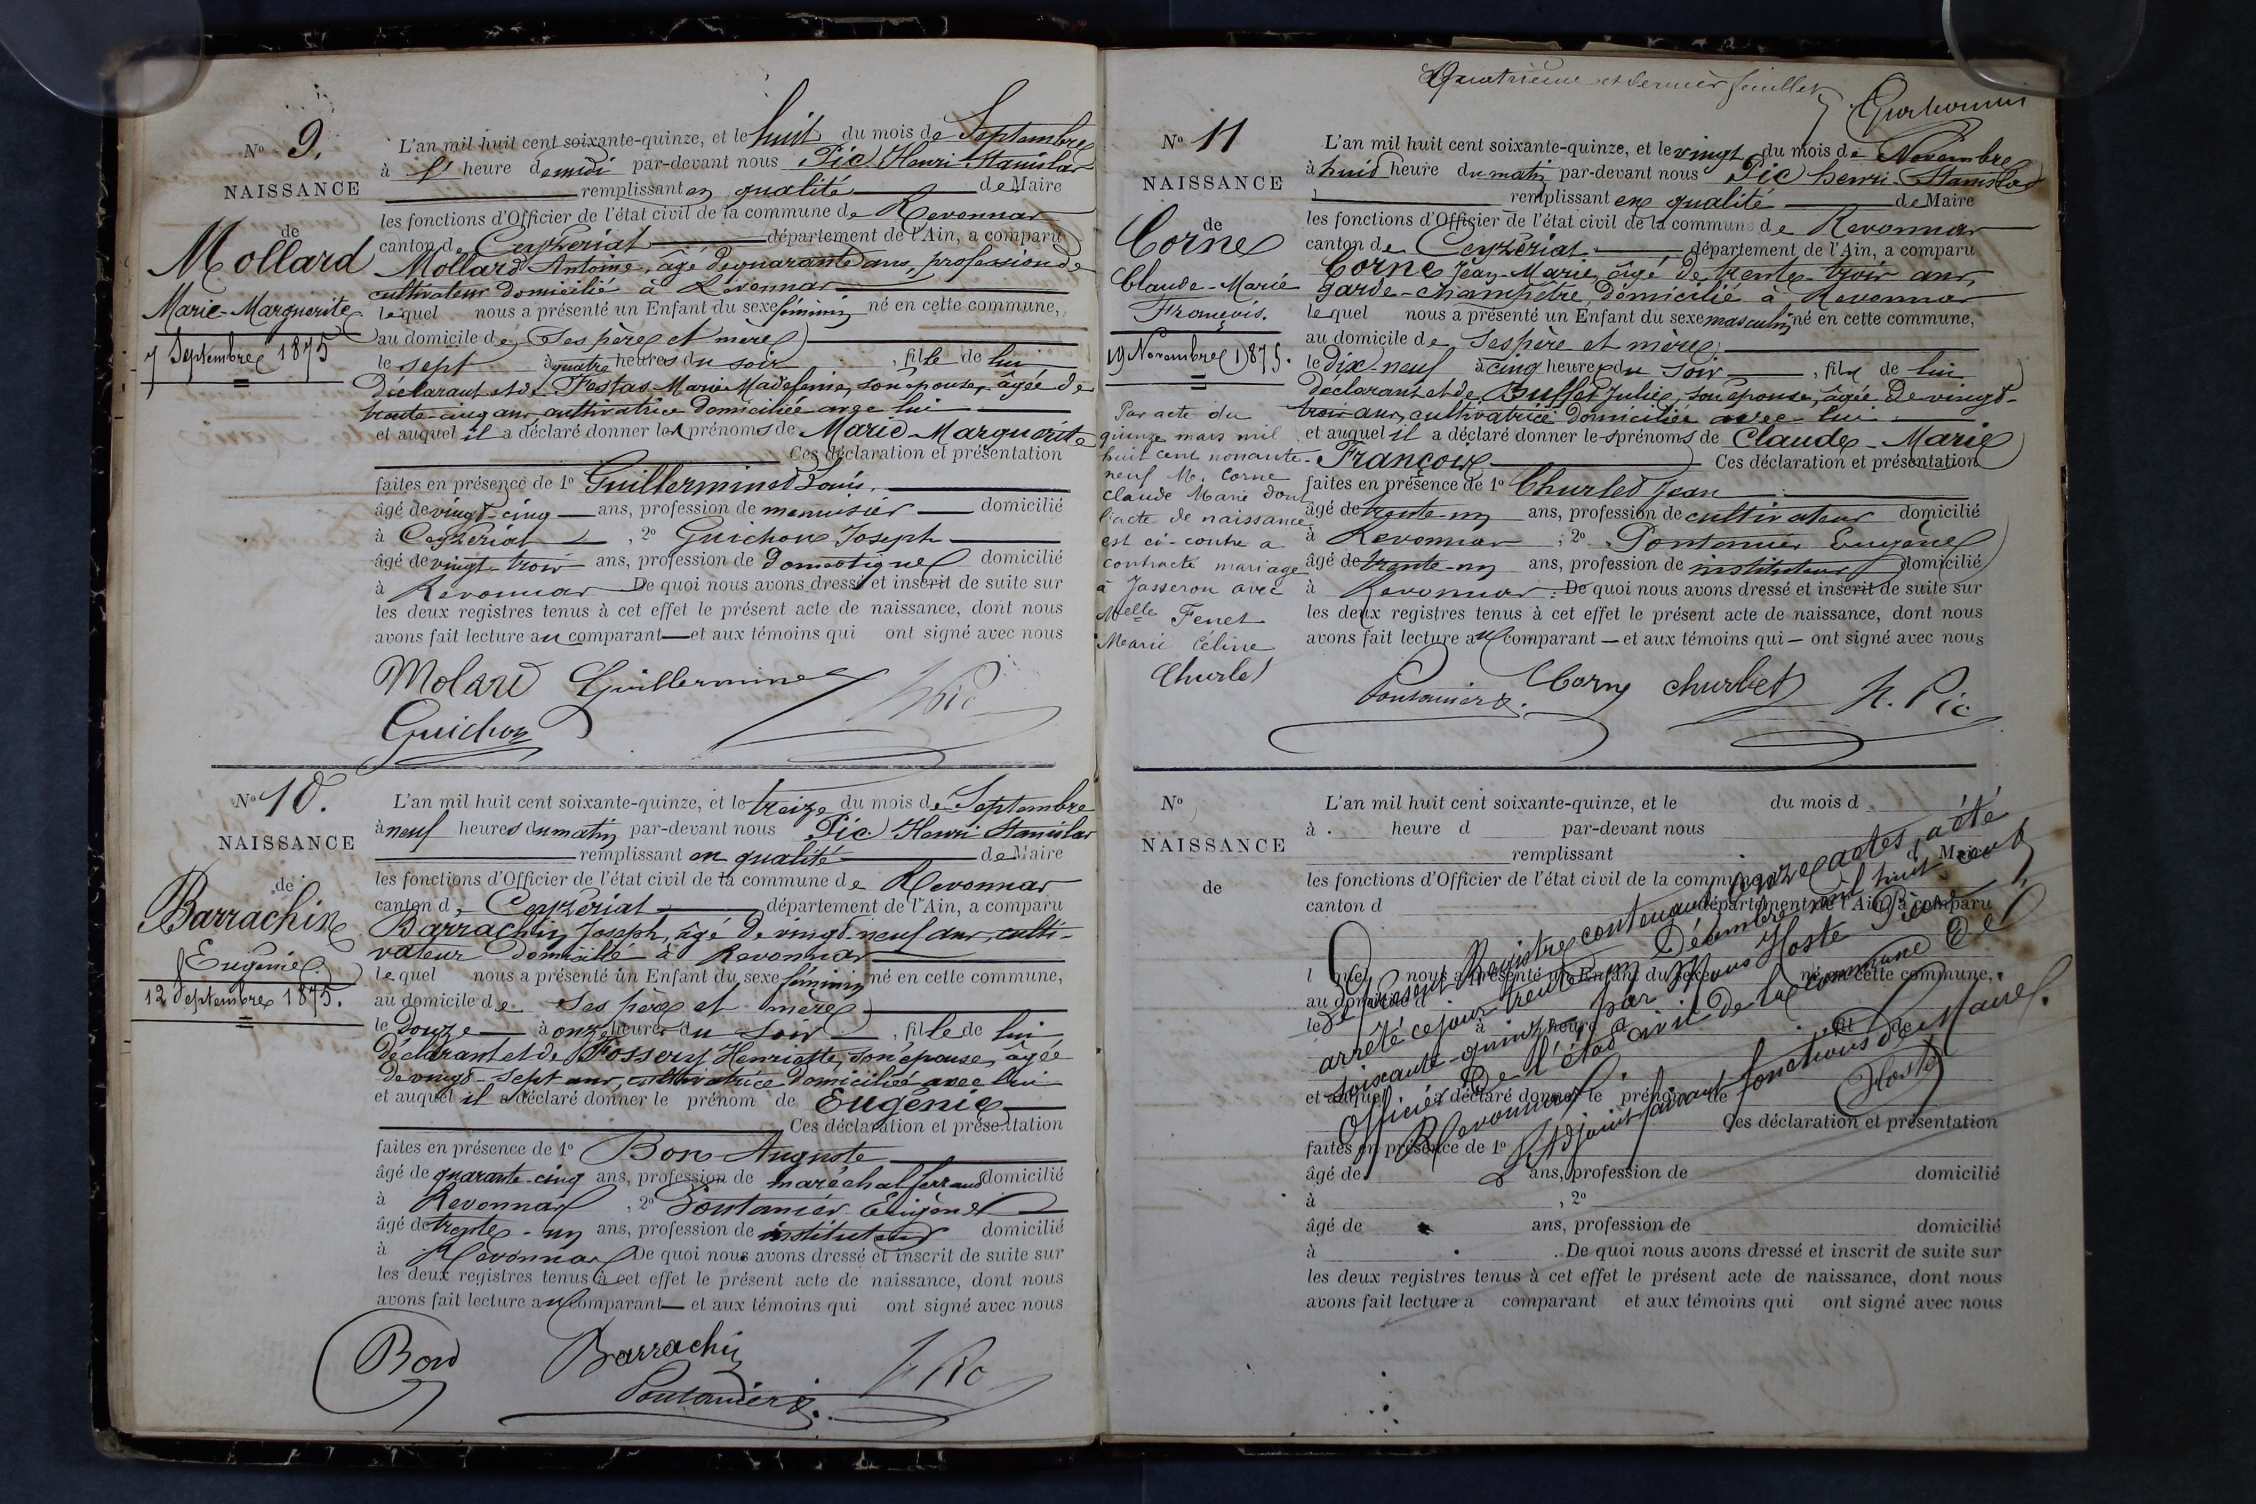 No 9.
NAISSANCE
de
Mollard
Marie-Marguerite
7 Septembre 1875
L'an mil huit cent soixante-quinze, et le huit du mois de Septembre
à l' heure de midi par-devant nous Pic Henri Stanislas
remplissant en qualité de Maire
les fonctions d'Officier de l'état civil de la commune de Revonnas
canton de Ceyzériat département de l'Ain, a comparu
Mollard Antoine, âgé de quarante ans, profession de
cultivateur domicilié à Revonnas
lequel nous a présenté un Enfant du sexe féminin né en cette commune,
au domicile de Ses père et mère
le sept à quatre heures du soir, fille de lui
déclarant et de Festas Marie Madeleine, son épouse, âgée de
trente-cinq ans, cultivatrice domiciliée avec lui
et auquel il a déclaré donner les prénoms de Marie-Marguerite
Ces déclaration et présentation
faites en présence de 1o Guillerminet Louis
âgé de vingt-cinq ans, profession de menuisier domicilié
à Ceyzériat, 2o Guichon Joseph
âgé de vingt-trois ans, profession de domestique domicilié
à Revonnas De quoi nous avons dressé et inscrit de suite sur
les deux registres tenus à cet effet le présent acte de naissance, dont nous
avons fait lecture au comparant et aux témoins qui ont signé avec nous
Molard Guillerminet H Pic
Guichon
No 10.
NAISSANCE
de
Barrachin
Eugénie.
12 Septembre 1875.
L'an mil huit cent soixante-quinze, et le treize du mois de Septembre
à neuf heures du matin par-devant nous Pic Henri Stanislas
remplissant en qualité de Maire
les fonctions d'Officier de l'état civil de la commune de Revonnas
canton de Ceyzériat département de l'Ain, a comparu
Barrachin Joseph, âgé de vingt-neuf ans, culti-
vateur domicilié à Revonnas
lequel nous a présenté un Enfant du sexe féminin né en cette commune,
au domicile de Ses père et mère
le Douze à onze heures du soir, fille de lui
déclarant et de Fossery Henriette, son épouse, âgée
de vingt-sept ans, cultivatrice domiciliée avec lui
et auquel il a déclaré donner le prénom de Eugénie
Ces déclaration et présentation
faites en présence de 1o Bon Auguste
âgé de quarante-cinq ans, profession de maréchal ferrand domicilié
à Revonnas, 2o Pontanier Eugène
âgé de trente-un ans, profession de instituteur domicilié
à Revonnas De quoi nous avons dressé et inscrit de suite sur
les deux registres tenus à cet effet le présent acte de naissance, dont nous
avons fait lecture au comparant et aux témoins qui ont signé avec nous
Bon Barrachin H Pic
Pontanier
Quatrième et dernier feuillet
No 11
NAISSANCE
de
Corne
Claude-Marie
François.
19 Novembre 1875.
Par acte du
quinze mars mil
huit cent nonante-
neuf M. Corne
Claude Marie dont
l'acte de naissance
est ci-contre a
contracté mariage
à Jasseron avec
Melle Fenet
Marie Céline
Churlet
L'an mil huit cent soixante-quinze, et le vingt du mois de Novembre
à huit heure du matin par-devant nous Pic henri-Stanislas
remplissant en qualité de Maire
les fonctions d'Officier de l'état civil de la commune de Revonnas
canton de Ceyzériat département de l'Ain, a comparu
Corne Jean-Marie, âgé de trente-trois ans,
garde-champêtre, domicilié à Revonnas
lequel nous a présenté un Enfant du sexe masculin né en cette commune,
au domicile de Ses père et mère
le dix neuf à cinq heures du soir, fils de lui
déclarant et de Buffet Julie, son épouse, âgée de vingt-
trois ans, cultivatrice domiciliée avec lui
et auquel il a déclaré donner les prénoms de Claude-Marie
François Ces déclaration et présentation
faites en présence de 1o Churlet Jean
âgé de trente-un ans, profession de cultivateur domicilié
à Revonnas ; 2o Pontanier Eugène
âgé de trente-un ans, profession de instituteur domicilié
à Revonnas. De quoi nous avons dressé et inscrit de suite sur
les deux registres tenus à cet effet le présent acte de naissance, dont nous
avons fait lecture au comparant et aux témoins qui ont signé avec nous
Pontanier Corne churlet h. Pic
No
NAISSANCE
de
L'an mil huit cent soixante-quinze, et le du mois d
à heure d par-devant nous
remplissant d Maire
les fonctions d'Officier de l'état civil de la commune d
canton d département de l'Ain, a comparu
l quel nous a présenté un Enfant du sexe né en cette commune,
au domicile d
le à heure d fil de
et auquel a déclaré donner le prénom de
Ces déclaration et présentation
faites en présence de 1o
âgé de ans, profession de domicilié
à , 2o
âgé de ans, profession de domicilié
à . De quoi nous avons dressé et inscrit de suite sur
les deux registres tenus à cet effet le présent acte de naissance, dont nous
avons fait lecture a comparant et aux témoins qui ont signé avec nous
Le présent Registre contenant onze actes, a été
arrêté ce jour trente un Décembre mil huit cent
soixante-quinze par Nous Hoste
Officier de l'état civil de la commune de
Revonnas.
L'Adjoint faisant fonctions de Maire.
Hoste